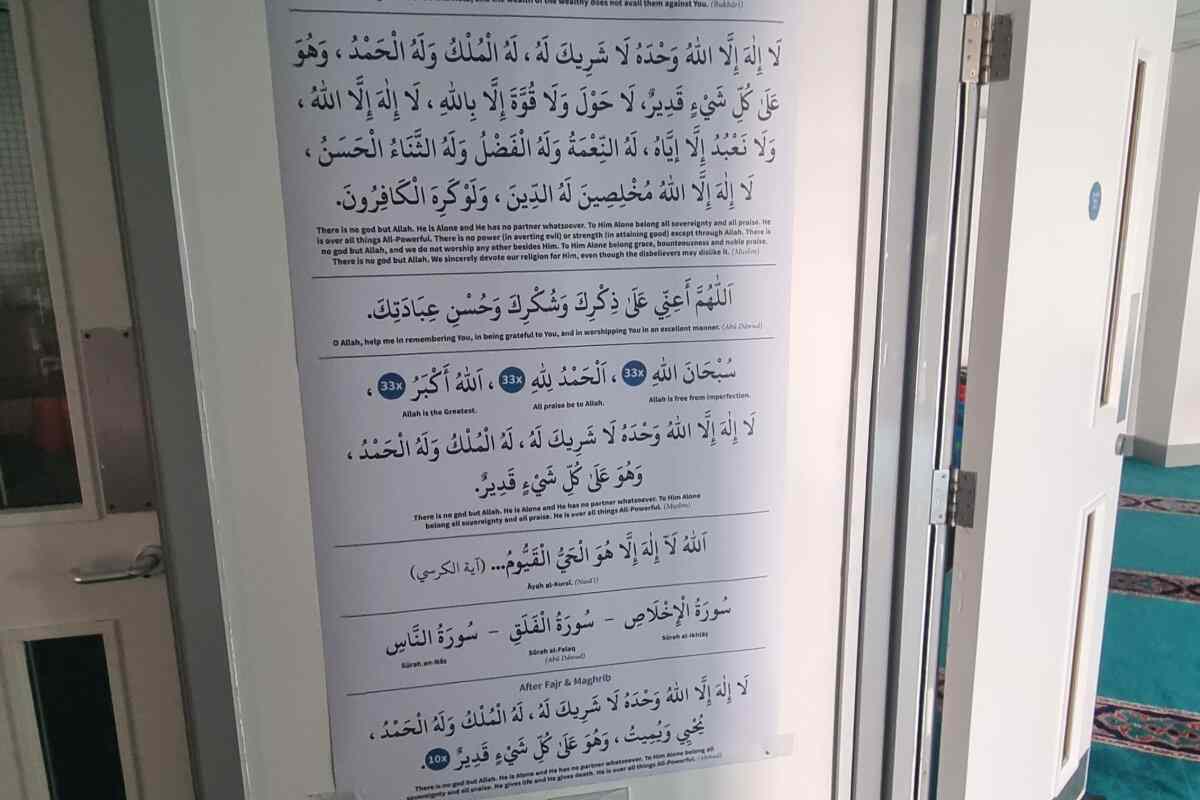 and the wealth of the wealthy does not avail them against You. (Bukhārī)
لَا إِلٰهَ إِلَّا اللهُ وَحْدَهُ لَا شَرِيكَ لَهُ ، لَهُ الْمُلْكُ وَلَهُ الْحَمْدُ ، وَهُوَ
عَلىٰ كُلِّ شَيْءٍ قَدِيرٌ، لَا حَوْلَ وَلَا قُوَّةَ إِلَّا بِاللهِ ، لَا إِلٰهَ إِلَّا اللهُ ،
وَلَا نَعْبُدُ إِلَّا إيَّاهُ ، لَهُ النِّعْمَةُ وَلَهُ الْفَضْلُ وَلَهُ الثَّنَاءُ الْحَسَنُ ،
لَا إِلٰهَ إِلَّا اللهُ مُخْلِصِينَ لَهُ الدِّينَ ، وَلَوْ كَرِهَ الْكَافِرُونَ.
There is no god but Allah. He is Alone and He has no partner whatsoever. To Him Alone belong all sovereignty and all praise. He
is over all things All-Powerful. There is no power (in averting evil) or strength (in attaining good) except through Allah. There is
no god but Allah, and we do not worship any other besides Him. To Him Alone belong grace, bounteousness and noble praise.
There is no god but Allah. We sincerely devote our religion for Him, even though the disbelievers may dislike it. (Muslim)
اَللّٰهُمَّ أَعِنِّي عَلىٰ ذِكْرِكَ وَشُكْرِكَ وَحُسْنِ عِبَادَتِكَ.
O Allah, help me in remembering You, in being grateful to You, and in worshipping You in an excellent manner. (Abū Dāwud)
سُبْحَانَ اللهِ 33x ، اَلْحَمْدُ لِلهِ 33x ، اَللهُ أَكْبَرُ 33x ،
Allah is free from imperfection. All praise be to Allah. Allah is the Greatest.
لَا إِلٰهَ إِلَّا اللهُ وَحْدَهُ لَا شَرِيكَ لَهُ ، لَهُ الْمُلْكُ وَلَهُ الْحَمْدُ ،
وَهُوَ عَلىٰ كُلِّ شَيْءٍ قَدِيرٌ.
There is no god but Allah. He is Alone and He has no partner whatsoever. To Him Alone
belong all sovereignty and all praise. He is over all things All-Powerful. (Muslim)
اَللهُ لَآ إِلٰهَ إِلَّا هُوَ الْحَيُّ الْقَيُّومُ... (آية الكرسي)
Āyah al-Kursī. (Nasā'ī)
سُورَةُ الْإِخْلَاصِ – سُورَةُ الْفَلَقِ – سُورَةُ النَّاسِ
Sūrah al-Ikhlāṣ Sūrah al-Falaq Sūrah an-Nās
(Abū Dāwud)
After Fajr & Maghrib
لَا إِلٰهَ إِلَّا اللهُ وَحْدَهُ لَا شَرِيكَ لَهُ ، لَهُ الْمُلْكُ وَلَهُ الْحَمْدُ ،
يُحْيِي وَيُمِيتُ ، وَهُوَ عَلىٰ كُلِّ شَيْءٍ قَدِيرٌ 10x .
There is no god but Allah. He is Alone and He has no partner whatsoever. To Him Alone belong all
sovereignty and all praise. He gives life and He gives death. He is over all things All-Powerful. (Aḥmad)